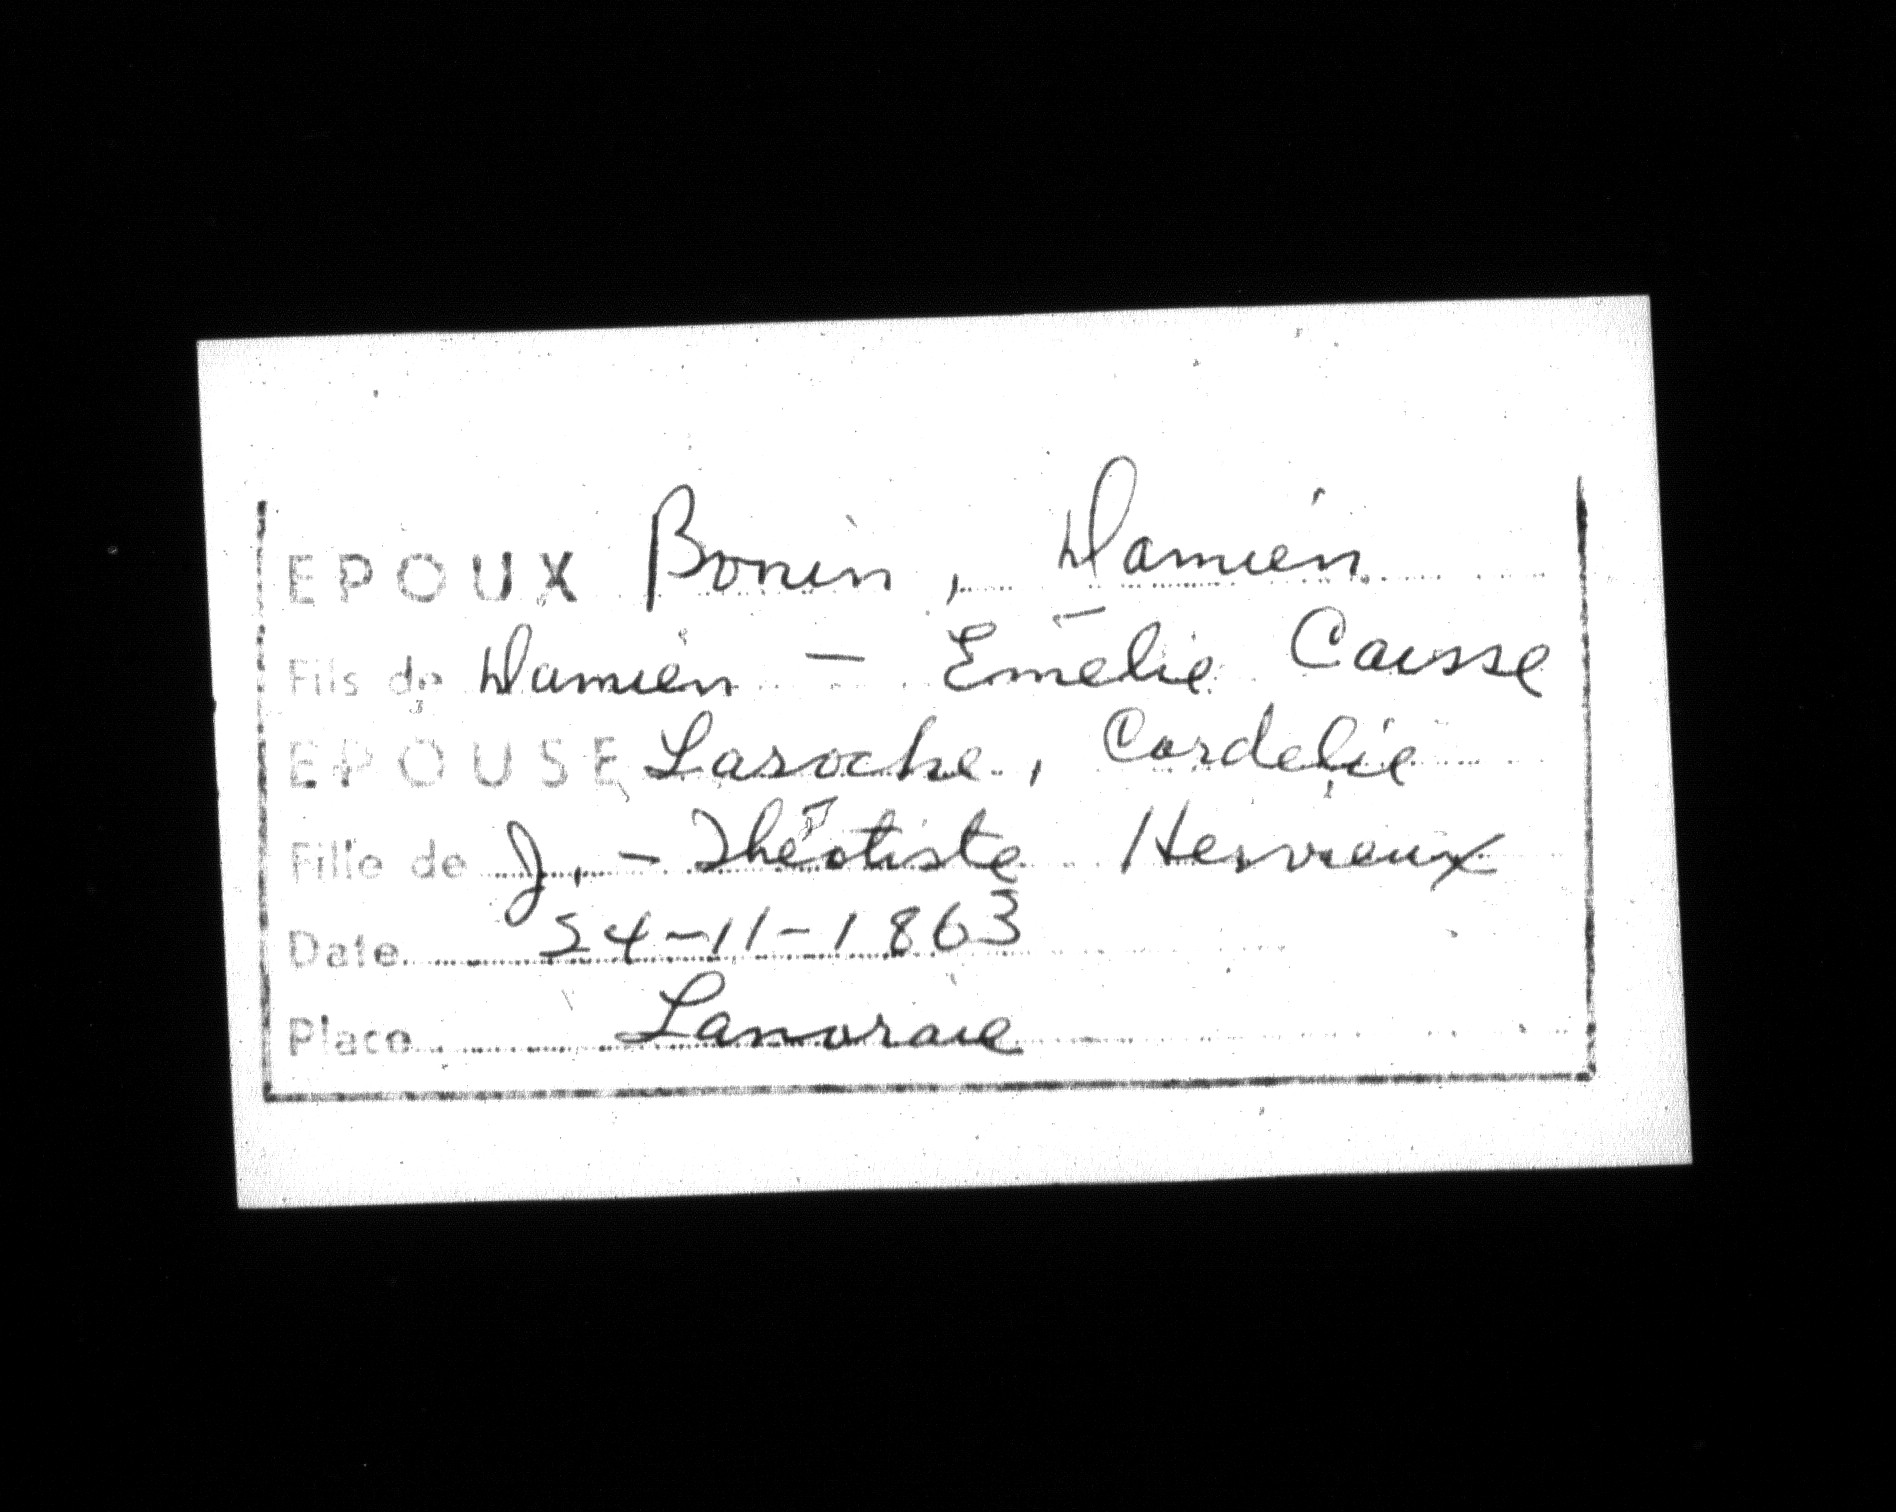 EPOUX Bonin, Damien
Fils de Damien - Emélie Caisse
EPOUSE Laroche, Cordelie
Fille de J. - Théotiste Hervieux
Date 24-11-1863
Place Lanoraie